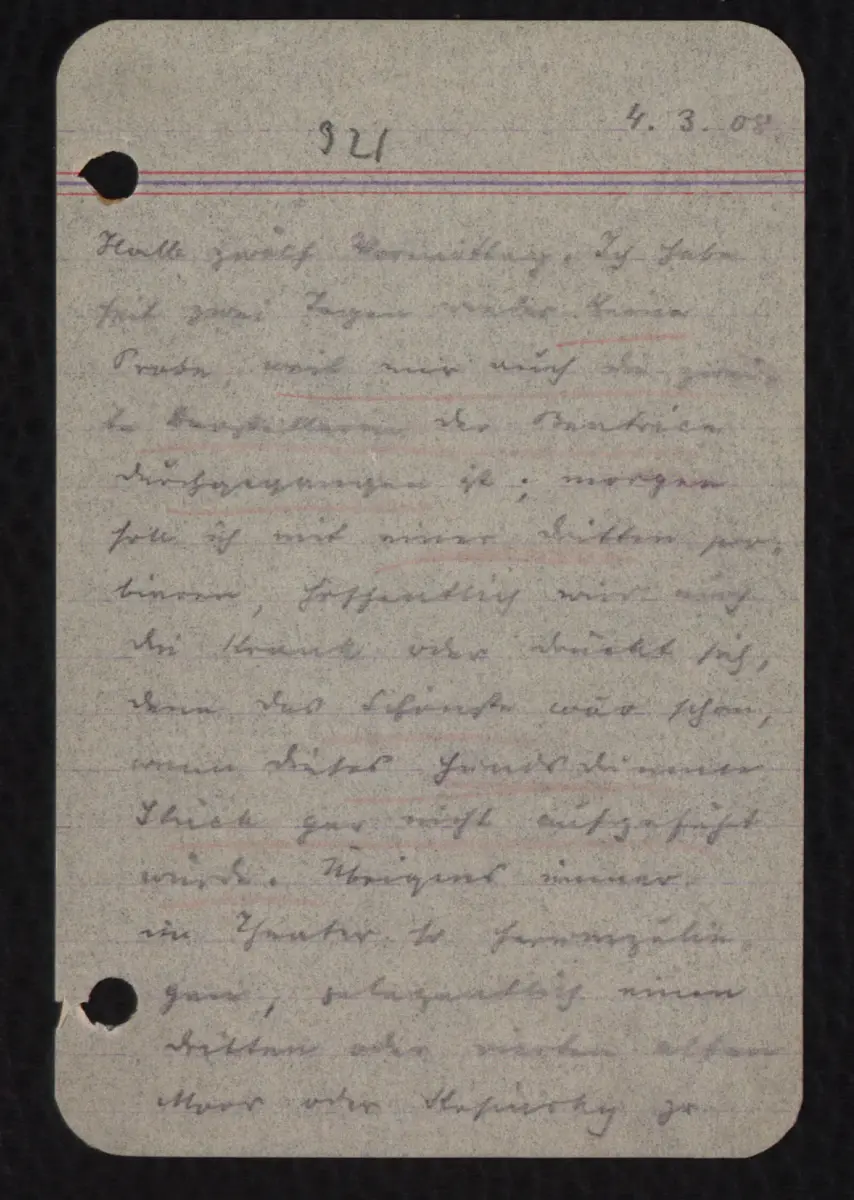 921
4. 3. 08.
Halle zwölf Vormittag. Ich habe
seit zwei Tagen wieder keine
Probe, weil mir auch die zwei-
te Darstellerin der Beatrice
durchgegangen ist; morgen
soll ich mit einer dritten pro-
bieren, hoffentlich wird auch
die krank oder drückt sich,
denn das Schönste wär schon,
wenn dieses hundsdumme
Stück gar nicht aufgeführt
würde. Übrigens immer
im Theater so herumzulie-
gen, gelegentlich einen
dritten oder vierten alten
Moor oder Kosinsky zu